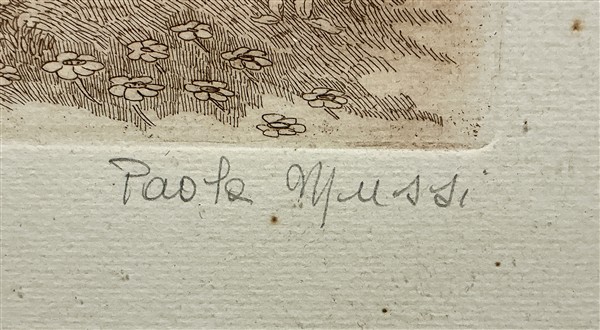 Paola Mussi